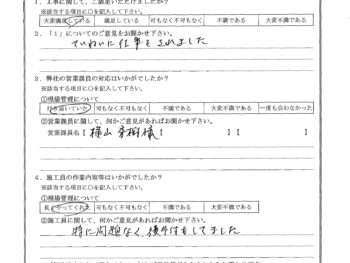 1. 工事に関して、ご満足いただけましたか？
※該当する項目に○を記入して下さい。
大変満足している 満足している 可もなく不可もなく 不満である 大変不満である
2. 「1」についてのご意見をお聞かせ下さい。
ていねいに仕事をされました
3. 弊社の営業課員の対応はいかがでしたか？
※該当する項目に○を記入して下さい。
①現場管理について
行き届いていた 可もなく不可もなく 不満である 大変不満である 一度も会わなかった
②営業課員に関して、何かご意見があればお聞かせ下さい。
営業課員名【 横山 様 】【 】
4. 施工員の作業内容等はいかがでしたか？
※該当する項目に○を記入して下さい。
①現場管理について
良くやってくれた 可もなく不可もなく 不満である 大変不満である
②施工員に関して、何かご意見があればお聞かせ下さい。
特に問題なく後片付もしてました